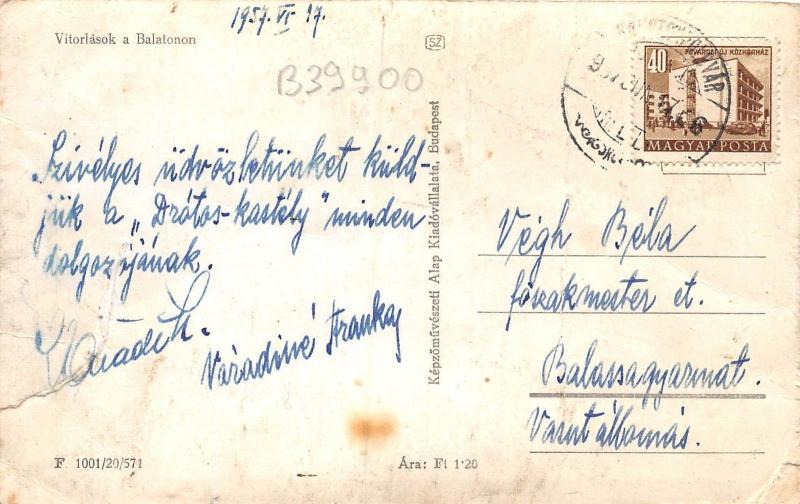 1957. VI. 17.
Vitorlások a Balatonon
SZ
B39900
40
FŐVÁROSI ÚJ KÖZKÓRHÁZ
MAGYAR POSTA
Szívélyes üdvözletünket küld-
jük a „Drótos-kastély" minden
dolgozójának.
Váradi K.
Váradiné Aranka
Képzőművészeti Alap Kiadóvállalata, Budapest
Végh Béla
főszakmester et.
Balassagyarmat.
Vasútállomás.
F. 1001/20/571
Ára: Ft 1·20